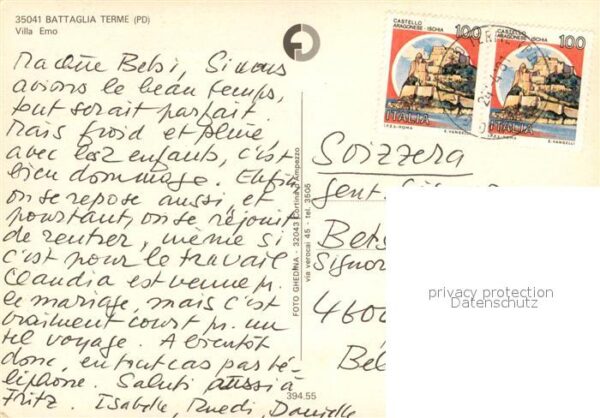 35041 BATTAGLIA TERME (PD)
Villa Emo
Madame Betsi, Si nous
avions le beau temps,
tout serait parfait.
Mais froid et pluie
avec les 2 enfants, c'est
bien dommage. Enfin
on se repose aussi, et
pourtant, on se réjouit
de rentrer, même si
c'est pour le travail
Claudia est venue p.
le mariage, mais c'est
vraiment court p. un
tel voyage. A bientôt
donc, en tout cas par té-
léphone. Saluti aussi à
Fritz. Isabelle, Ruedi, Danielle
FOTO GHEDINA - 32043 Cortina d'Ampezzo
via verocai 45 - tel. 3505
394.55
CASTELLO
ARAGONESE - ISCHIA
100
ITALIA
I.P.Z.S. - ROMA
E. VANGELLI
CASTELLO
ARAGONESE - ISCHIA
100
ITALIA
I.P.Z.S. - ROMA
E. VANGELLI
Svizzera
Gent.
Bets
Signor
4600
Bel
privacy protection
Datenschutz